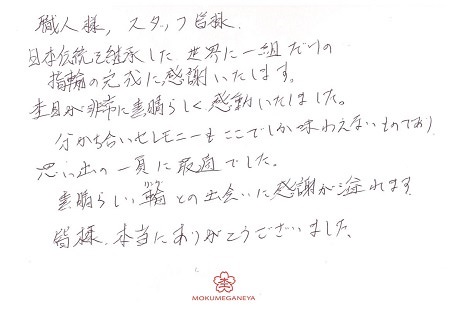 職人様、スタッフ皆様
日本伝統を継承した世界に一組だけの
指輪の完成に感謝いたします。
杢目が非常に素晴らしく感動いたしました。
分かち合いセレモニーもここでしか味わえないものであり
思い出の一頁に最適でした。
素晴らしい輪との出会いに感謝が溢れます
皆様、本当にありがとうございました。
MOKUMEGANEYA